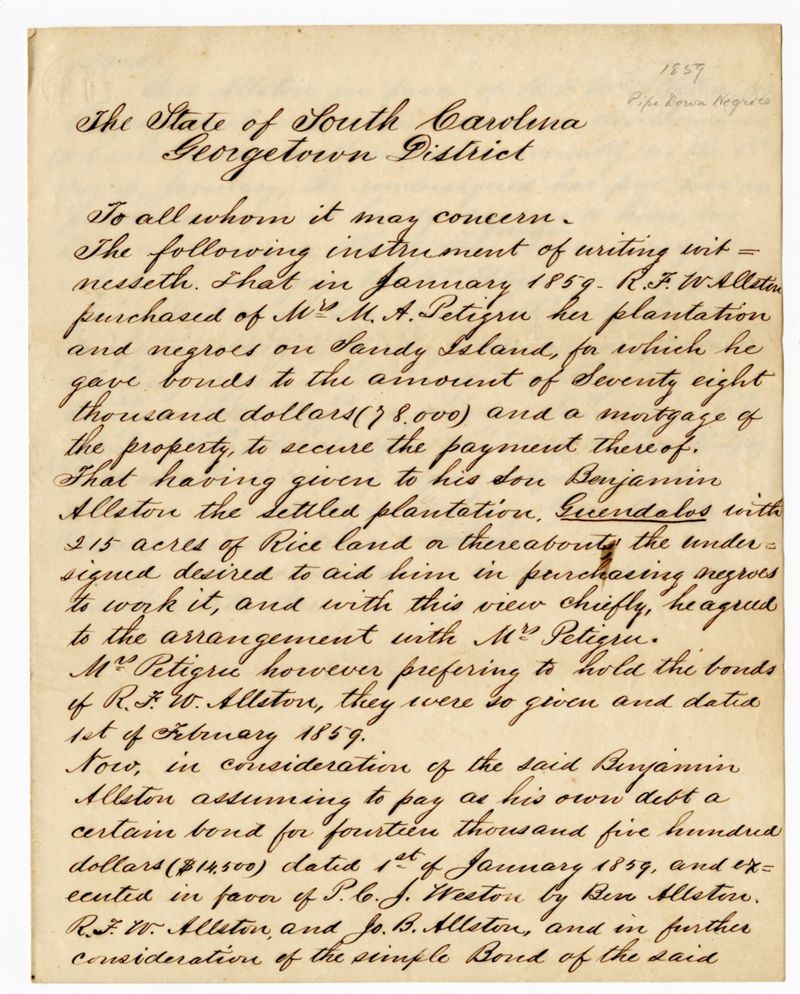 1859
Pipe Down Negroes
The State of South Carolina
Georgetown District
To all whom it may concern.
The following instrument of writing wit=
nesseth. That in January 1859- R. F. W Allston
purchased of Mrs M. A. Petigru her plantation
and negroes on Sandy Island, for which he
gave bonds to the amount of Seventy eight
thousand dollars (78.000) and a mortgage of
the property, to secure the payment thereof.
That having given to his son Benjamin
Allston the settled plantation, Guendalos with
215 acres of Rice land or thereabouts the under=
signed desired to aid him in purchasing negroes
to work it, and with this view chiefly, he agreed
to the arrangement with Mrs Petigru.
Mrs Petigru however prefering to hold the bonds
of R. F. W. Allston, they were so given and dated
1st of February 1859.
Now, in consideration of the said Benjamin
Allston assuming to pay as his own debt a
certain bond for fourteen thousand five hundred
dollars ($14,500) dated 1st of January 1859, and ex=
ecuted in favor of P. C. J. Weston by Ben Allston.
R. F. W. Allston, and Jo. B. Allston, and in further
consideration of the simple Bond of the said